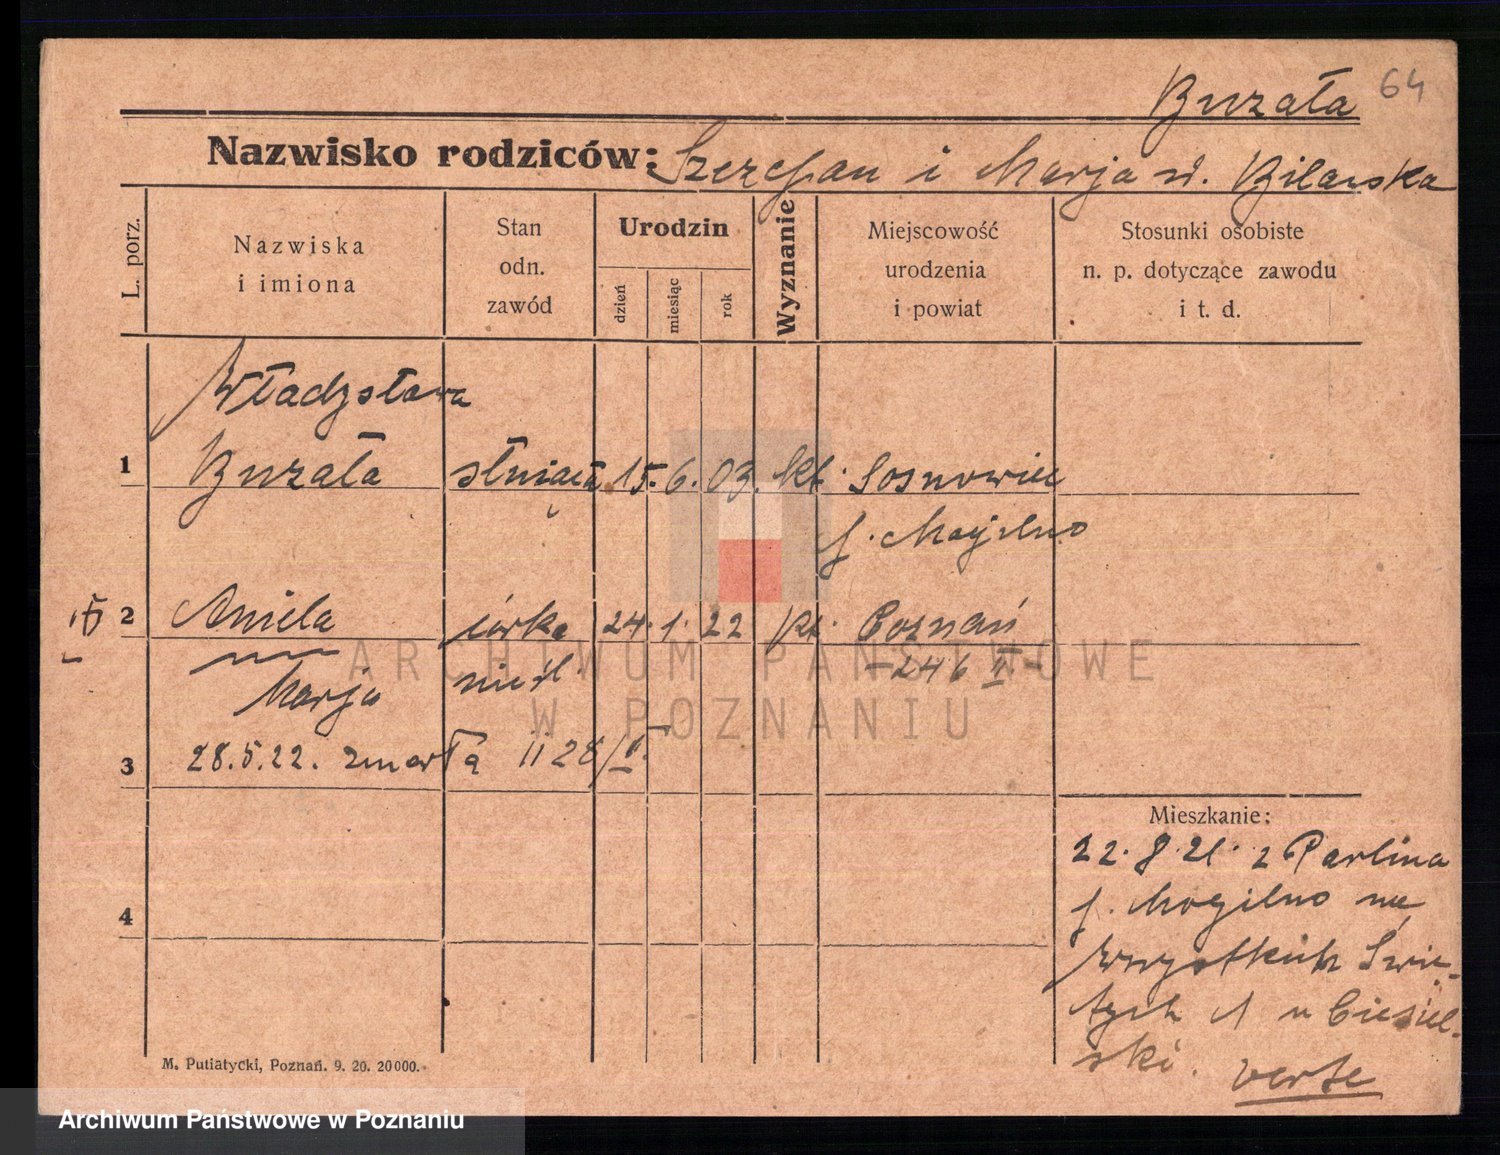 Buzała 64
Nazwisko rodziców: Szczepan i Marja z d. Bilarska
L. porz.
Nazwiska i imiona
Stan odn. zawód
Urodzin
dzień
miesiąc
rok
Wyznanie
Miejscowość urodzenia i powiat
Stosunki osobiste n. p. dotyczące zawodu i t. d.
Władysława
1 Buzała służąca 15. 6. 03. kt. Sosnowiec
p. Mogilno
2 Aniela córka 24. 1. 22 kt. Poznań
Marja nieśl. -246 II-
3 28.5.22. zmarła
Mieszkanie:
22. 8. 21. z Parlina
p. Mogilno na
4
Wszystkich Świę-
tych 1 u Ciesiel-
ski. verte
M. Putiatycki, Poznań. 9. 20. 20000.
ARCHIWUM PAŃSTWOWE
W POZNANIU
Archiwum Państwowe w Poznaniu